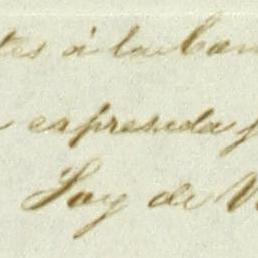 tes á la Can
espresada p
Soy de V